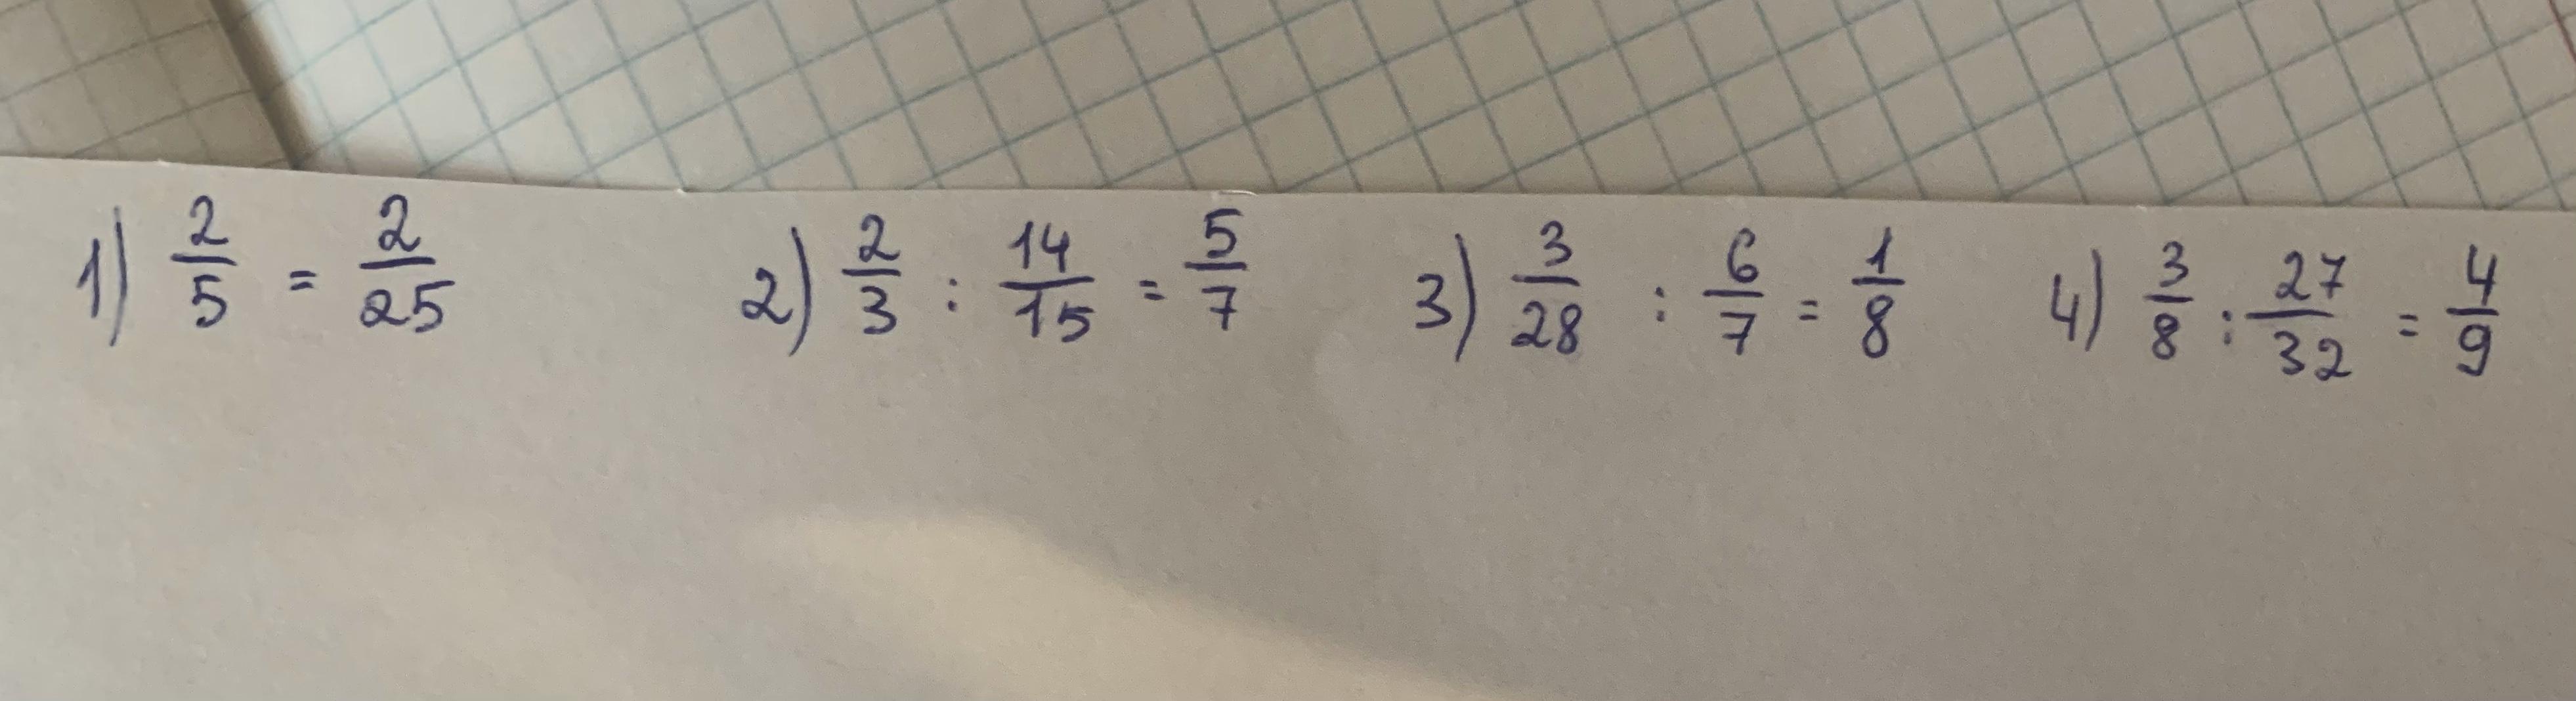 1) 2/5 = 2/25 2) 2/3 : 14/15 = 5/7 3) 3/28 : 6/7 = 1/8 4) 3/8 : 27/32 = 4/9